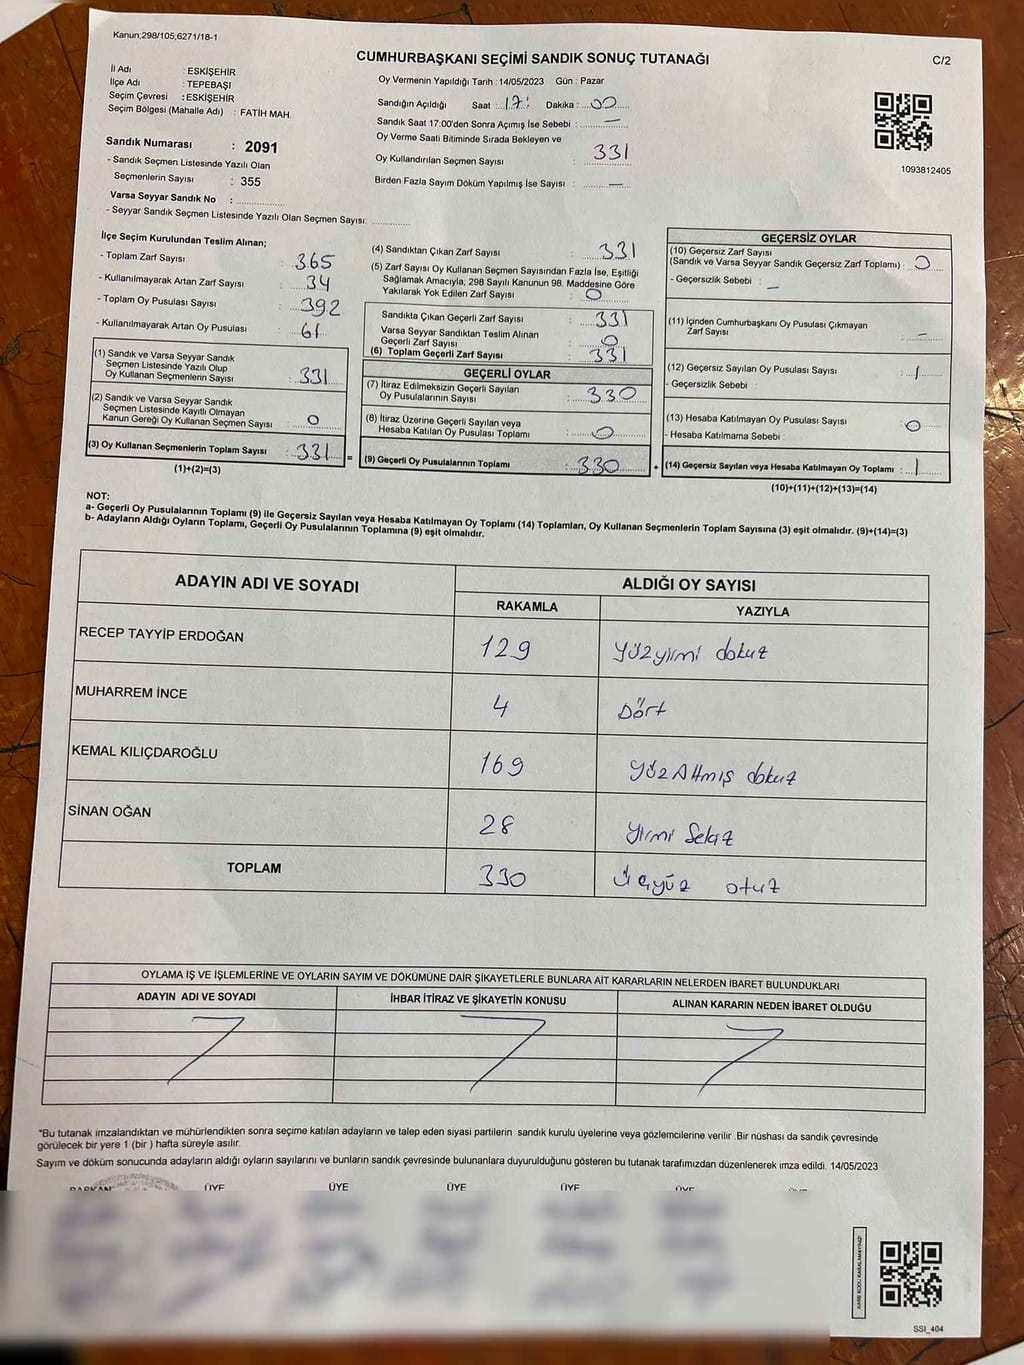 Kanun;298/105;6271/18-1
CUMHURBAŞKANI SEÇİMİ SANDIK SONUÇ TUTANAĞI
C/2
İl Adı : ESKİŞEHİR
İlçe Adı : TEPEBAŞI
Seçim Çevresi : ESKİŞEHİR
Seçim Bölgesi (Mahalle Adı) : FATİH MAH.
Oy Vermenin Yapıldığı Tarih : 14/05/2023 Gün : Pazar
Sandığın Açıldığı Saat : 17: Dakika : 00
Sandık Saat 17:00'den Sonra Açımış İse Sebebi : —
Oy Verme Saati Bitiminde Sırada Bekleyen ve
Oy Kullandırılan Seçmen Sayısı : 331
Birden Fazla Sayım Döküm Yapılmış İse Sayısı : —
1093812405
Sandık Numarası : 2091
- Sandık Seçmen Listesinde Yazılı Olan
Seçmenlerin Sayısı : 355
Varsa Seyyar Sandık No :
- Seyyar Sandık Seçmen Listesinde Yazılı Olan Seçmen Sayısı:
İlçe Seçim Kurulundan Teslim Alınan;
- Toplam Zarf Sayısı : 365
- Kullanılmayarak Artan Zarf Sayısı : 34
- Toplam Oy Pusulası Sayısı : 392
- Kullanılmayarak Artan Oy Pusulası : 61
(1) Sandık ve Varsa Seyyar Sandık
Seçmen Listesinde Yazılı Olup
Oy Kullanan Seçmenlerin Sayısı : 331
(2) Sandık ve Varsa Seyyar Sandık
Seçmen Listesinde Kayıtlı Olmayan
Kanun Gereği Oy Kullanan Seçmen Sayısı : 0
(3) Oy Kullanan Seçmenlerin Toplam Sayısı : 331 =
(1)+(2)=(3)
(4) Sandıktan Çıkan Zarf Sayısı : 331
(5) Zarf Sayısı Oy Kullanan Seçmen Sayısından Fazla İse, Eşitliği
Sağlamak Amacıyla, 298 Sayılı Kanunun 98. Maddesine Göre
Yakılarak Yok Edilen Zarf Sayısı : 0
Sandıkta Çıkan Geçerli Zarf Sayısı : 331
Varsa Seyyar Sandıktan Teslim Alınan
Geçerli Zarf Sayısı : 0
(6) Toplam Geçerli Zarf Sayısı : 331
GEÇERLİ OYLAR
(7) İtiraz Edilmeksizin Geçerli Sayılan
Oy Pusulalarının Sayısı : 330
(8) İtiraz Üzerine Geçerli Sayılan veya
Hesaba Katılan Oy Pusulası Toplamı : 0
(9) Geçerli Oy Pusulalarının Toplamı : 330 +
GEÇERSİZ OYLAR
(10) Geçersiz Zarf Sayısı
(Sandık ve Varsa Seyyar Sandık Geçersiz Zarf Toplamı) : 0
- Geçersizlik Sebebi : —
(11) İçinden Cumhurbaşkanı Oy Pusulası Çıkmayan
Zarf Sayısı : —
(12) Geçersiz Sayılan Oy Pusulası Sayısı : 1
- Geçersizlik Sebebi :
(13) Hesaba Katılmayan Oy Pusulası Sayısı : 0
- Hesaba Katılmama Sebebi :
(14) Geçersiz Sayılan veya Hesaba Katılmayan Oy Toplamı : 1
(10)+(11)+(12)+(13)=(14)
NOT:
a- Geçerli Oy Pusulalarının Toplamı (9) ile Geçersiz Sayılan veya Hesaba Katılmayan Oy Toplamı (14) Toplamları, Oy Kullanan Seçmenlerin Toplam Sayısına (3) eşit olmalıdır. (9)+(14)=(3)
b- Adayların Aldığı Oyların Toplamı, Geçerli Oy Pusulalarının Toplamına (9) eşit olmalıdır.
ADAYIN ADI VE SOYADI ALDIĞI OY SAYISI
RAKAMLA YAZIYLA
RECEP TAYYİP ERDOĞAN 129 yüzyirmi dokuz
MUHARREM İNCE 4 Dört
KEMAL KILIÇDAROĞLU 169 yüzAltmış dokuz
SİNAN OĞAN 28 yirmi Sekiz
TOPLAM 330 üçyüz otuz
OYLAMA İŞ VE İŞLEMLERİNE VE OYLARIN SAYIM VE DÖKÜMÜNE DAİR ŞİKAYETLERLE BUNLARA AİT KARARLARIN NELERDEN İBARET BULUNDUKLARI
ADAYIN ADI VE SOYADI İHBAR İTİRAZ VE ŞİKAYETİN KONUSU ALINAN KARARIN NEDEN İBARET OLDUĞU
"Bu tutanak imzalandıktan ve mühürlendikten sonra seçime katılan adayların ve talep eden siyasi partilerin sandık kurulu üyelerine veya gözlemcilerine verilir .Bir nüshası da sandık çevresinde
görülecek bir yere 1 (bir ) hafta süreyle asılır.
Sayım ve döküm sonucunda adayların aldığı oyların sayılarını ve bunların sandık çevresinde bulunanlara duyurulduğunu gösteren bu tutanak tarafımızdan düzenlenerek imza edildi. 14/05/2023
BAŞKAN ÜYE ÜYE ÜYE ÜYE ÜYE
KARE KODU KARALAMAYINIZ!
SSI_404